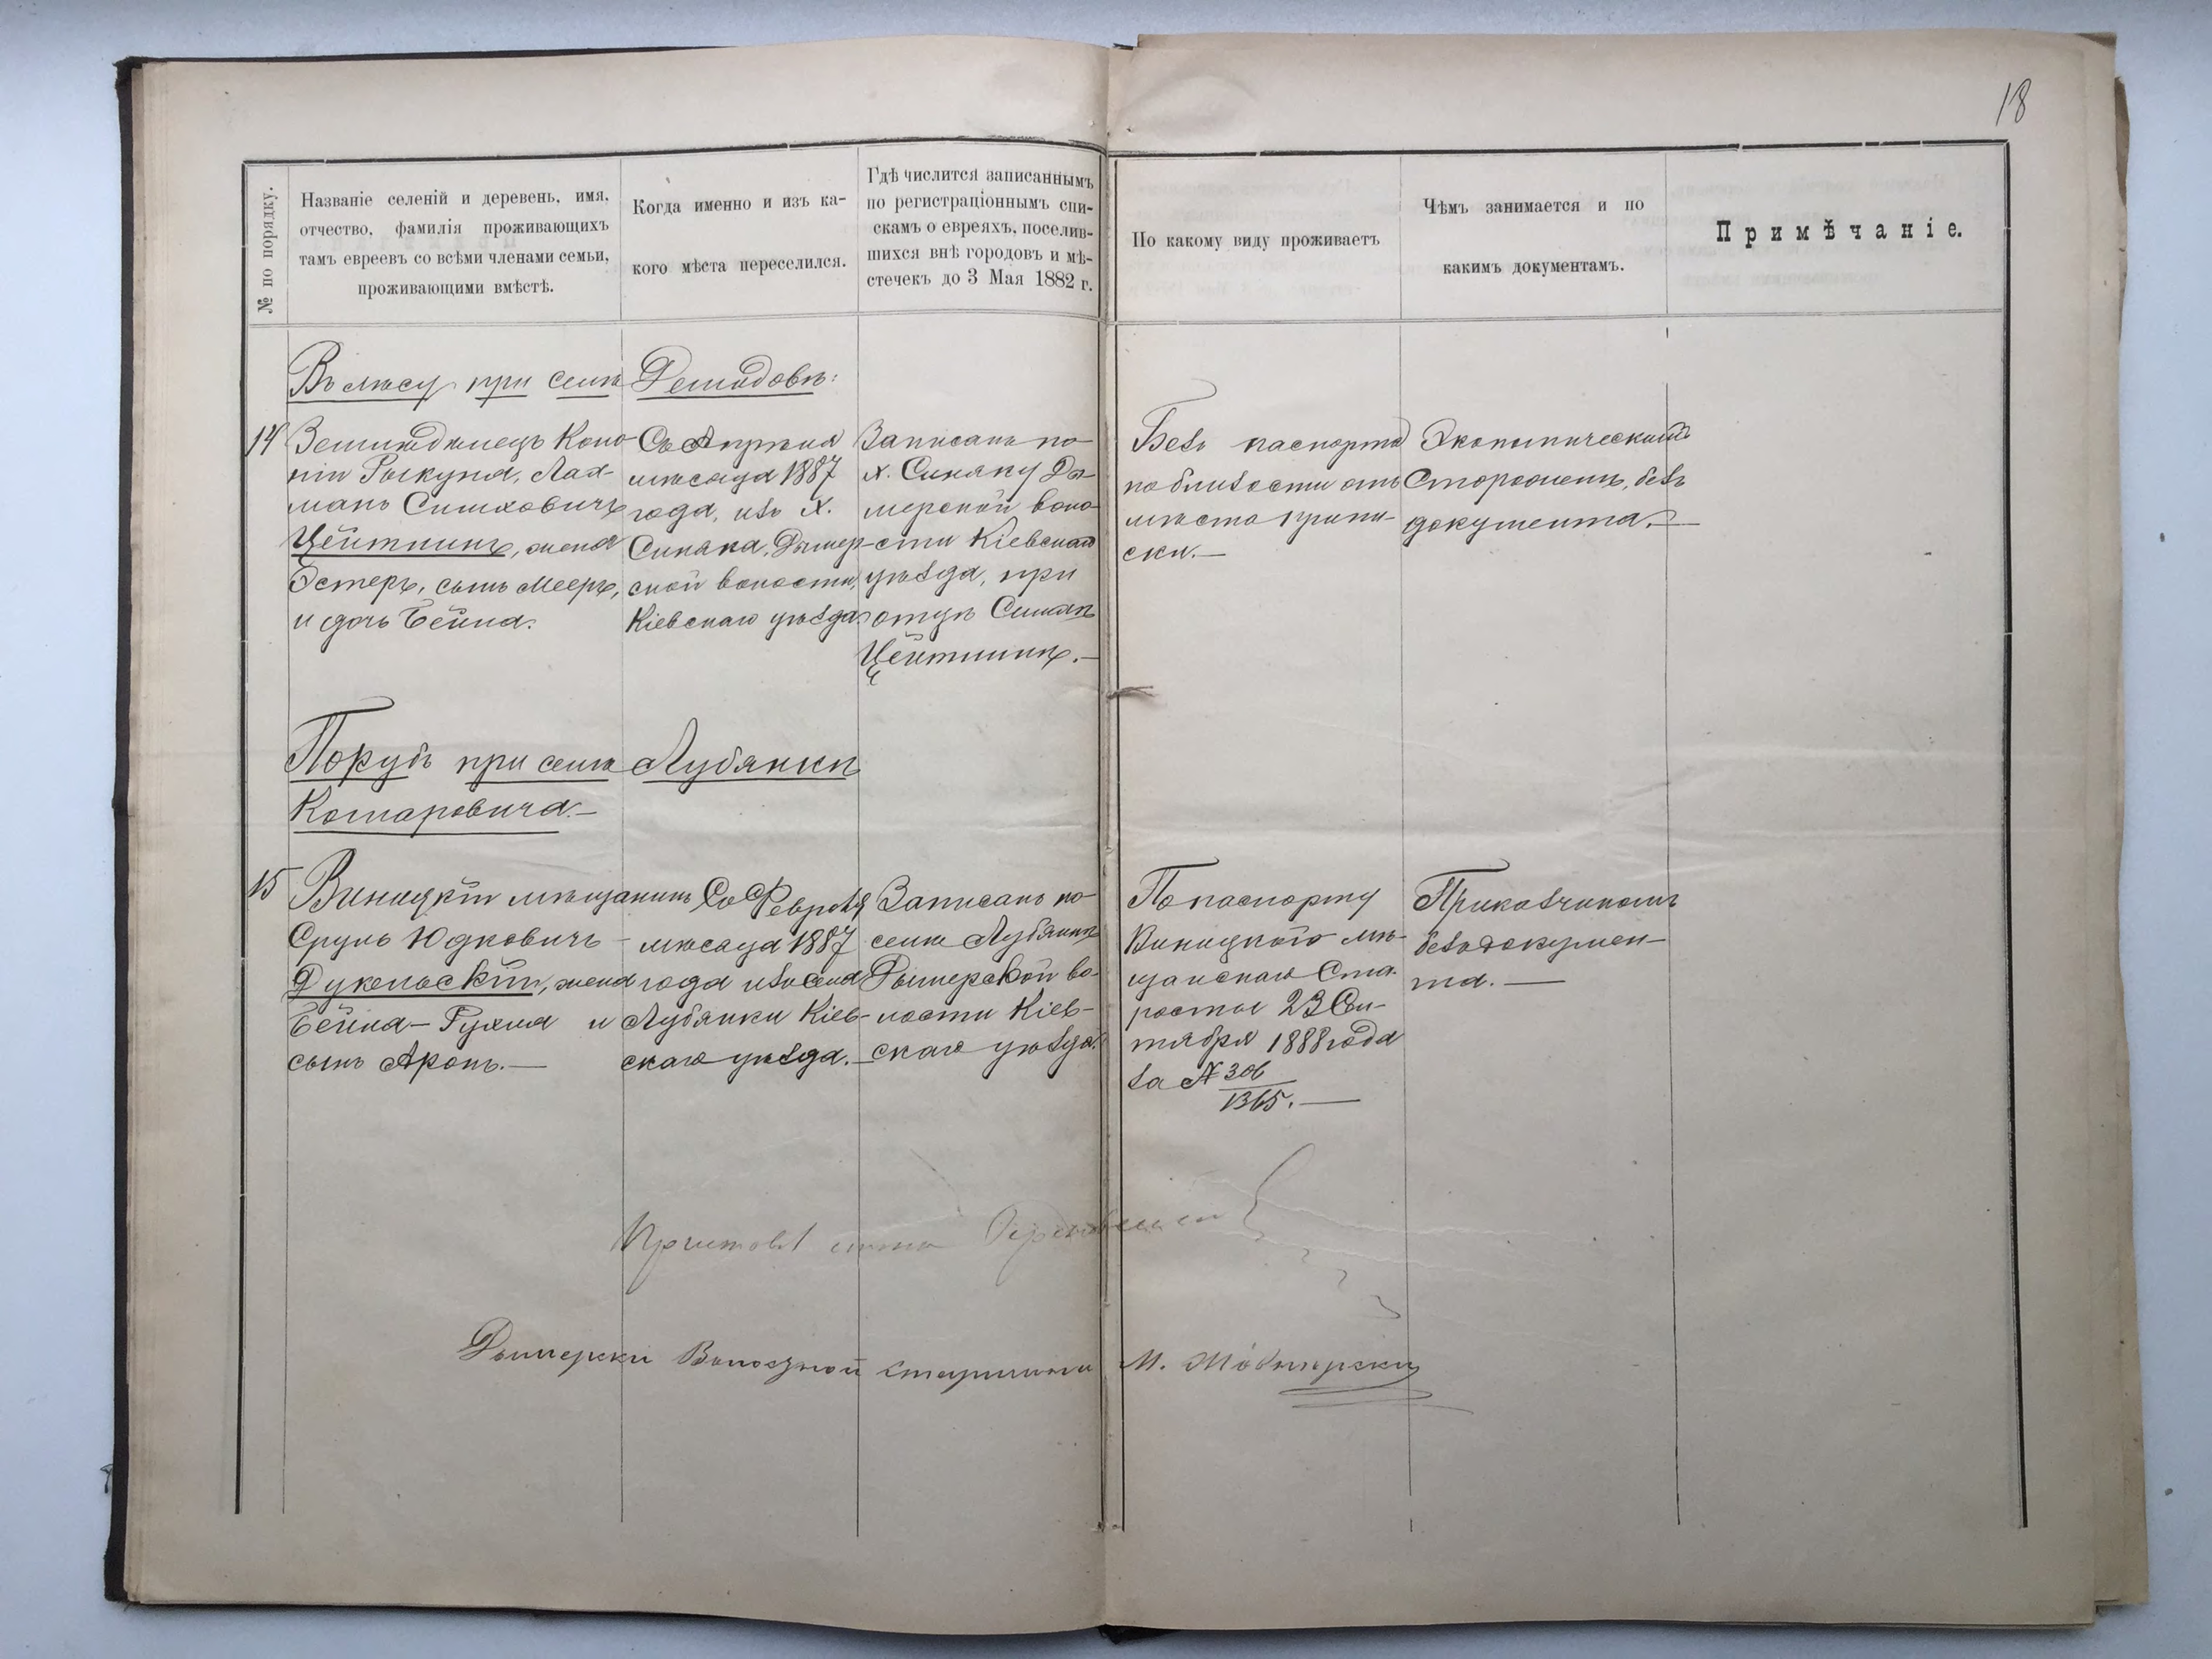 18
№ по порядку.
Названіе селеній и деревень, имя,
отчество, фамилія проживающихъ
тамъ евреевъ со всѣми членами семьи,
проживающими вмѣстѣ.
Когда именно и изъ ка-
кого мѣста переселился.
Гдѣ числится записаннымъ
по регистраціоннымъ спи-
скамъ о евреяхъ, поселив-
шихся внѣ городовъ и мѣ-
стечекъ до 3 Мая 1882 г.
По какому виду проживаетъ
Чѣмъ занимается и по
какимъ документамъ.
Примѣчаніе.
Въ лѣсу при селѣ Демидовѣ:
14
Земледѣлецъ Коло-
ніи Рыкуна, Лах-
манъ Симховичъ
Цейтлинъ, жена
Эстеръ, сынъ Мееръ,
и дочь Бейла.
Съ Апрѣля
мѣсяца 1887
года, изъ х.
Синяка, Дымер-
ской волости,
Кіевскаго уѣзда
Записанъ по
х. Синяку Ды-
мерской воло-
сти Кіевскаго
уѣзда, при
отцѣ Симхѣ
Цейтлинѣ.—
Безъ паспорта
по близости отъ
мѣста припи-
ски.—
Экономическимъ
Сторожемъ, безъ
документа.—
Порубъ при селѣ Лубянкѣ
Комаровича.—
15
Виницкій мѣщанинъ
Сруль Юдковичъ
Дукельскій, жена
Бейла-Рухля и
сынъ Аронъ.—
Съ Февраля
мѣсяца 1887
года изъ села
Лубянки Кіев-
скаго уѣзда.—
Записанъ по
селу Лубянкѣ
Дымерской во-
лости Кіев-
скаго уѣзда.
По паспорту
Виницкого мѣ-
щанскаго Ста-
росты 23 Сен-
тября 1888 года
за № 306
1365.—
Прикащикомъ
безъ докумен-
та.—
Приставъ стана
Дымерски Волостной старшина М.